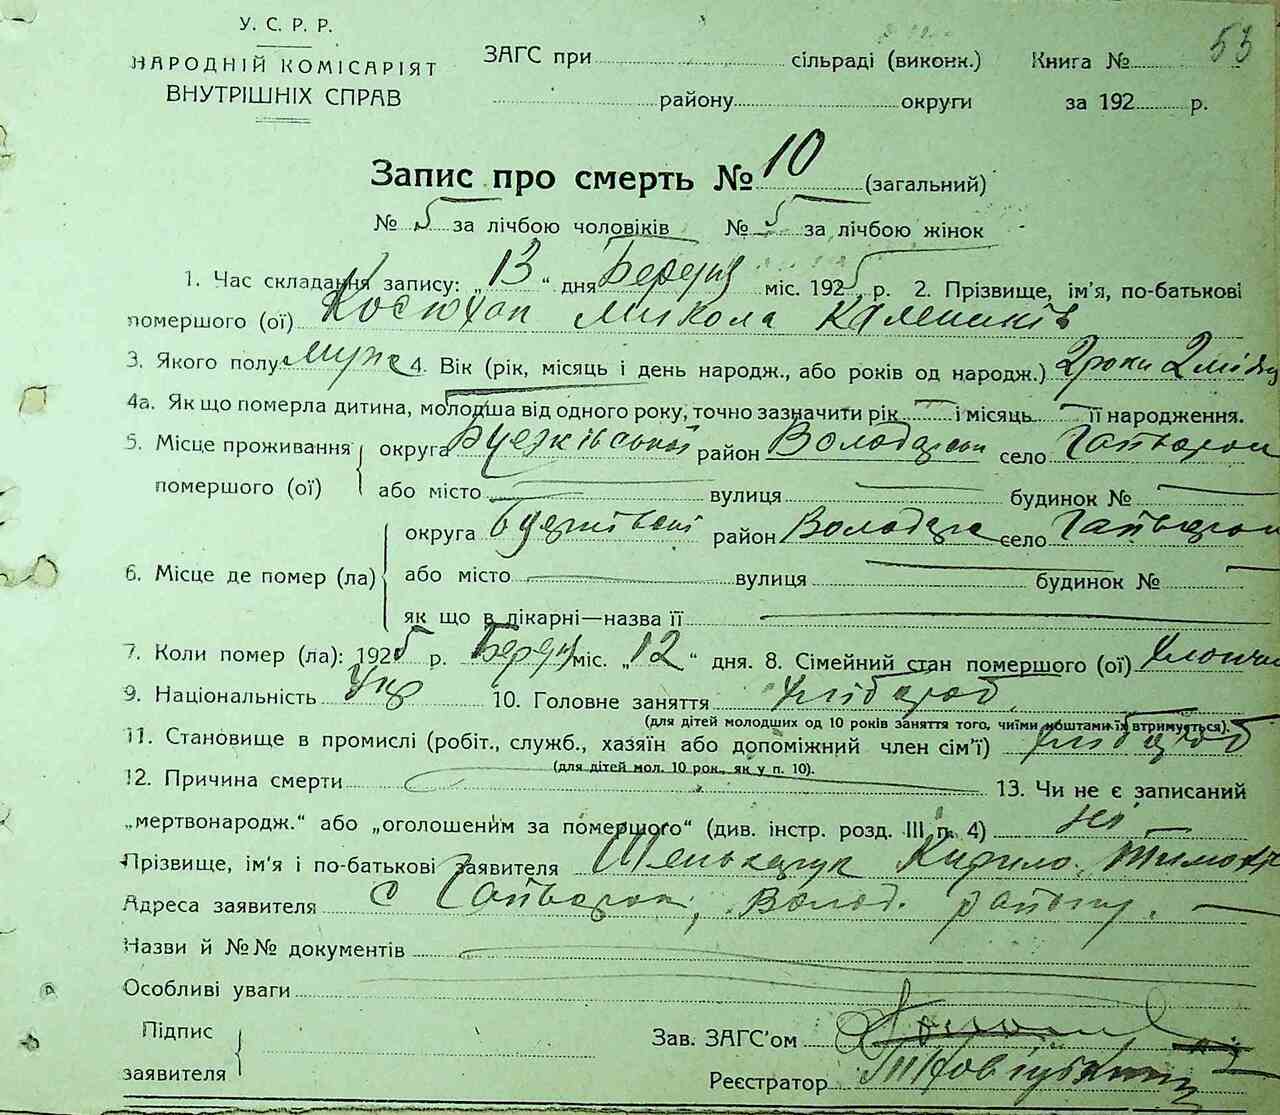 53
У. С. Р. Р.
НАРОДНІЙ КОМІСАРІЯТ
ВНУТРІШНІХ СПРАВ
ЗАГС при сільраді (виконк.) Книга №
району округи за 192 р.
Запис про смерть № 10 (загальний)
№ 5 за лічбою чоловіків № 5 за лічбою жінок
1. Час складання запису: „13“ дня Березня міс. 1925 р. 2. Прізвище, ім'я, по-батькові
помершого (ої) Микола
3. Якого полу муж 4. Вік (рік, місяць і день народж., або років од народж.) 2 роки 2 місяц
4а. Як що померла дитина, молодша від одного року, точно зазначити рік — і місяць — її народження.
5. Місце проживання помершого (ої) округа район село Гайворон
або місто — вулиця — будинок № —
6. Місце де помер (ла) округа район село Гайворон
або місто — вулиця — будинок № —
як що в лікарні—назва її —
7. Коли помер (ла): 1925 р. міс. „12“ дня. 8. Сімейний стан помершого (ої)
9. Національність Укр 10. Головне заняття хлібороб
(для дітей молодших од 10 років заняття того, чиїми коштами їх втримується).
11. Становище в промислі (робіт., служб., хазяїн або допоміжний член сім'ї) хлібороб
(для дітей мол. 10 рок., як у п. 10).
12. Причина смерти — 13. Чи не є записаний
„мертвонародж.“ або „оголошеним за помершого“ (див. інстр. розд. III п. 4) ні —
Прізвище, ім'я і по-батькові заявителя Кирило
Адреса заявителя с Гайворон, Волод. району. —
Назви й №№ документів —
Особливі уваги
Підпис
заявителя
Зав. ЗАГС'ом
Реєстратор